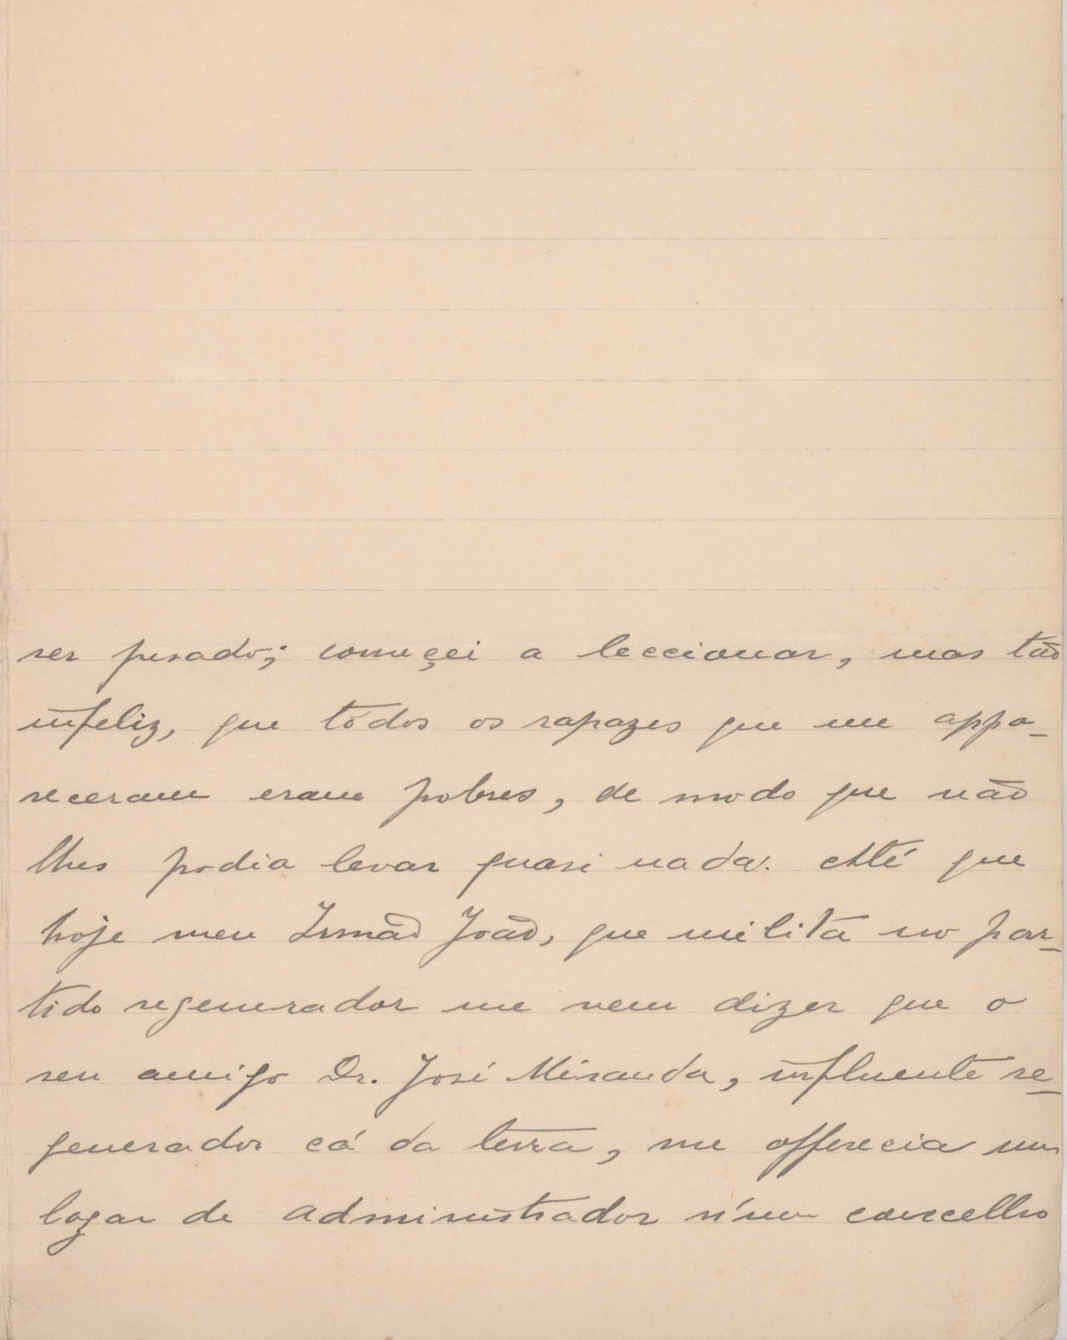 ser pesado; començei a leccionar, mas tão
infeliz, que todos os rapazes que me appa-
receram eram pobres, de modo que não
lhes podia levar quasi nada. Até que
hoje meu Irmão João, que milita no par-
tido regenerador me vem dizer que o
seu amigo Dr. José Miranda, influente re-
generador cá da terra, me offerecia um
logar de administrador n'um concelho